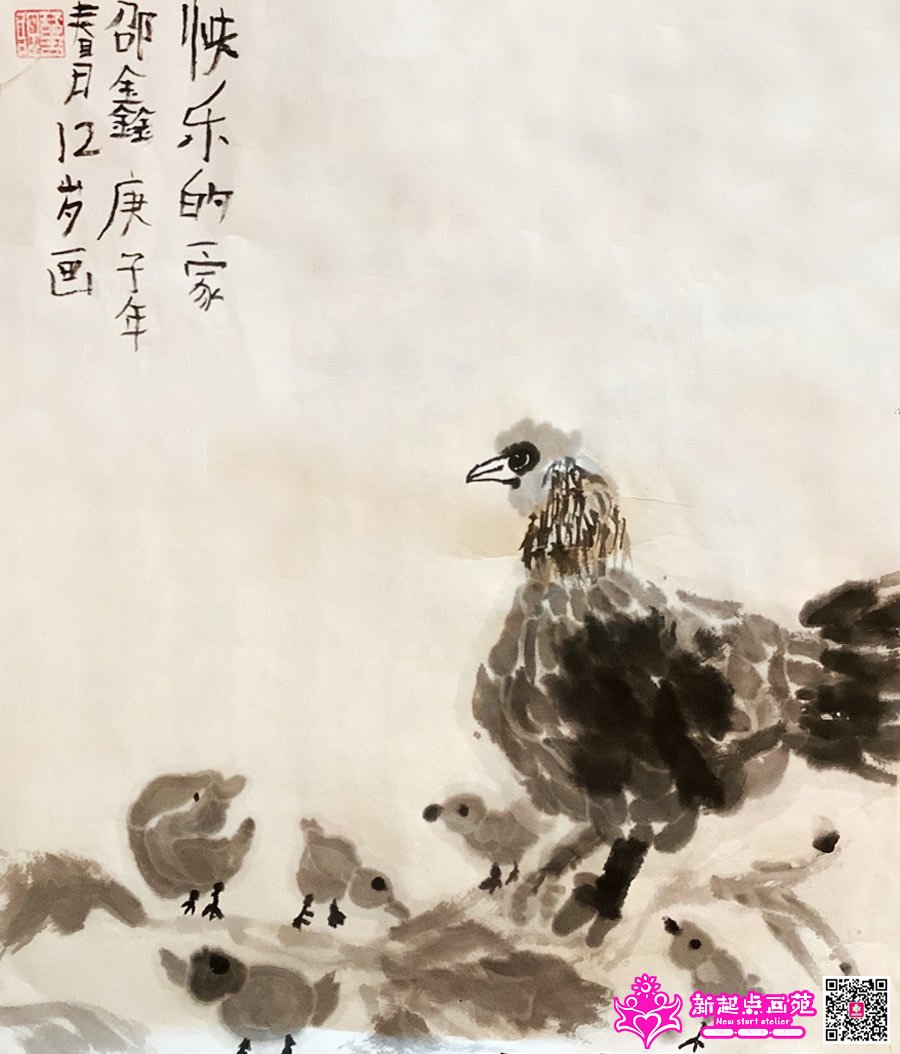 快乐的一家
邵鑫 庚子年
春月12岁画
新起点画苑
New start atelier